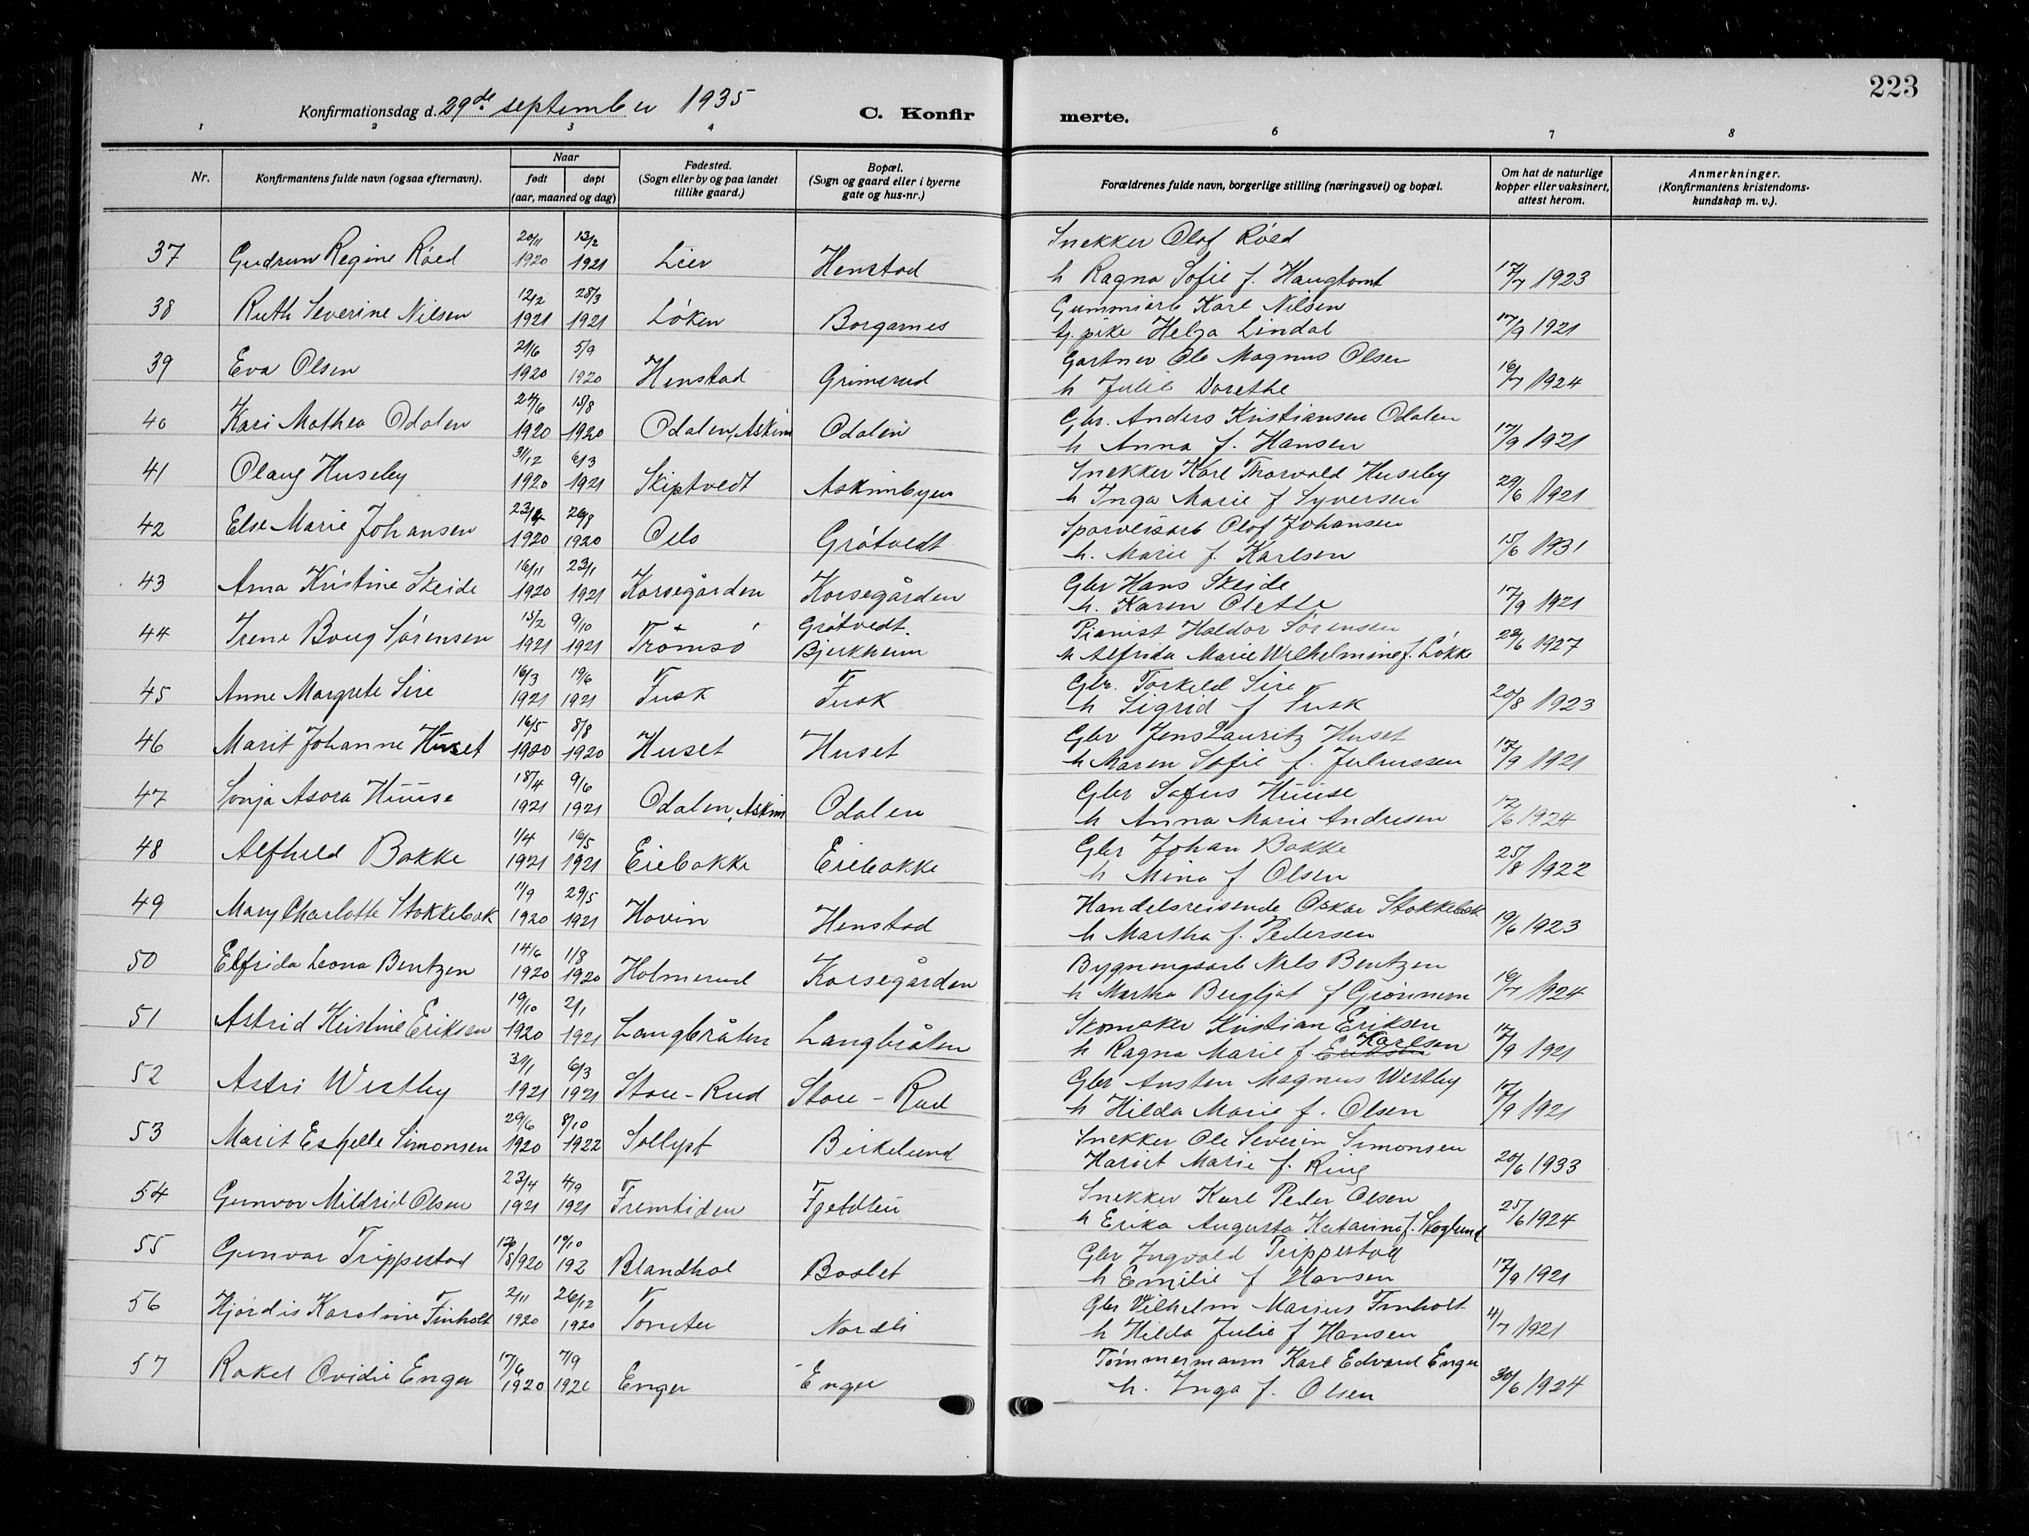 223
Konfirmationsdag d. 29de september 1935 C. Konfir merte.
1 2 3 4 6 7 8
Nr. Konfirmantens fulde navn (ogsaa efternavn). Naar født døpt (aar, maaned og dag) Fødested. (Sogn eller by og paa landet tillike gaard.) Bopæl. (Sogn og gaard eller i byerne gate og hus-nr.) Forældrenes fulde navn, borgerlige stilling (næringsvei) og bopæl. Om hat de naturlige kopper eller vaksinert, attest herom. Anmerkninger. (Konfirmantens kristendoms- kundskap m. v.).
37 Gudrun Regine Röed 20/11 1920 13/2 1921 Lier Henstad Snekker Olof Röed
h Ragna Sofie f. Haugtomt 17/7 1923
38 Ruth Severine Nilsen 12/2 1921 28/3 1921 Løken Borgarnes Gummiarb Karl Nilsen
tj. pike Helga Lindal 17/9 1921
39 Eva Olsen 21/6 1920 5/9 1920 Henstad Grimsrud Gartner Ole Magnus Olsen
h Julie Dorethe 16/7 1924
40 Kari Mathea Odalen 24/6 1920 15/8 1920 Odalen, Askim Odalen Gbr. Anders Kristiansen Odalen
h Anna f. Hansen 17/9 1921
41 Olaug Huseby 31/12 1920 6/3 1921 Skiptvedt Askimbyen Snekker Karl Thorvald Huseby
h Inga Marie f Syversen 29/6 1921
42 Else Marie Johansen 1920 26/8 1920 Oslo Grötvedt Sporveisarb Olof Johansen
h. Marie f. Karlsen 15/6 1931
43 Anna Kristine Skeide 16/11 1920 23/1 1921 Korsegården Korsegården Gbr Hans Skeide
h. Karen Olette 17/9 1921
44 Irene Boug Sørensen 15/2 1921 9/10 1921 Tromsö Grötvedt. Bjerkheim Pianist Haldor Sørensen
h Alfrida Marie Wilhelmine f. Løkke 28/6 1927
45 Anne Margrete Sire 16/3 1921 19/6 1921 Fusk Fusk Gbr. Torkild Sire
h Sigrid f Fusk 20/8 1923
46 Marit Johanne Huset 16/5 1920 8/8 1920 Huset Huset Gbr Jens Lauritz Huset
h Maren Sofie f. Juliussen 17/9 1921
47 Sonja Asora Huuse 18/4 1921 9/6 1921 Odalen, Askim Odalen Gbr Sofus Huuse
h Anna Marie Andresen 17/6 1924
48 Alfhild Bakke 1/4 1921 16/5 1921 Eiebakke Eiebakke Gbr Johan Bakke
h Mina f Olsen 25/8 1922
49 Mary Charlotte Stokkebæk 11/9 1920 29/5 1921 Hovin Henstad Handelsreisende Oskar Stokkebæk
h Martha f. Pedersen 19/6 1923
50 Elfrida Leona Bentzen 14/6 1920 1/8 1920 Holmsrud Korsegården Bygningsarb Nils Bentzen
h Martha Bergljot f 16/7 1924
51 Astrid Kristine Eriksen 19/10 1920 2/1 1921 Langbråten Langbråten Skomaker Kristian Eriksen
h Ragna Marie f Eriksen Karlsen 17/9 1921
52 Astri Westby 31/1 1921 6/3 1921 Store-Rud Store-Rud Gbr Austen Magnus Westby
h Hilda Marie f. Olsen 17/9 1921
53 Marit Estelle Simonsen 29/6 1920 8/10 1922 Sollyst Birkelund Snekker Ole Severin Simonsen
Hariet Marie f. Ring 20/6 1933
54 Gunvor Mildrid Olsen 23/4 1921 4/9 1921 Fremtiden Fjeldlien Snekker Karl Peder Olsen
h Erika Augusta Katarina f. Skoglund 25/6 1924
55 Gunvor Trippestad 1920 19/10 192 Blandhol Baslet Gbr Ingvald Trippestad
h Emilie f Hansen 17/9 1921
56 Hjørdis Karoline Finholt 2/11 1920 26/12 1920 Tomter Nordli Gbr Vilhelm Marius Finholt
h Hilda Julie f Hansen 4/7 1921
57 Rakel Ovidie Enger 17/6 1920 7/9 192 Enger Enger Tömmermann Karl Edvard Enger
h. Inga f. Olsen 30/6 1924